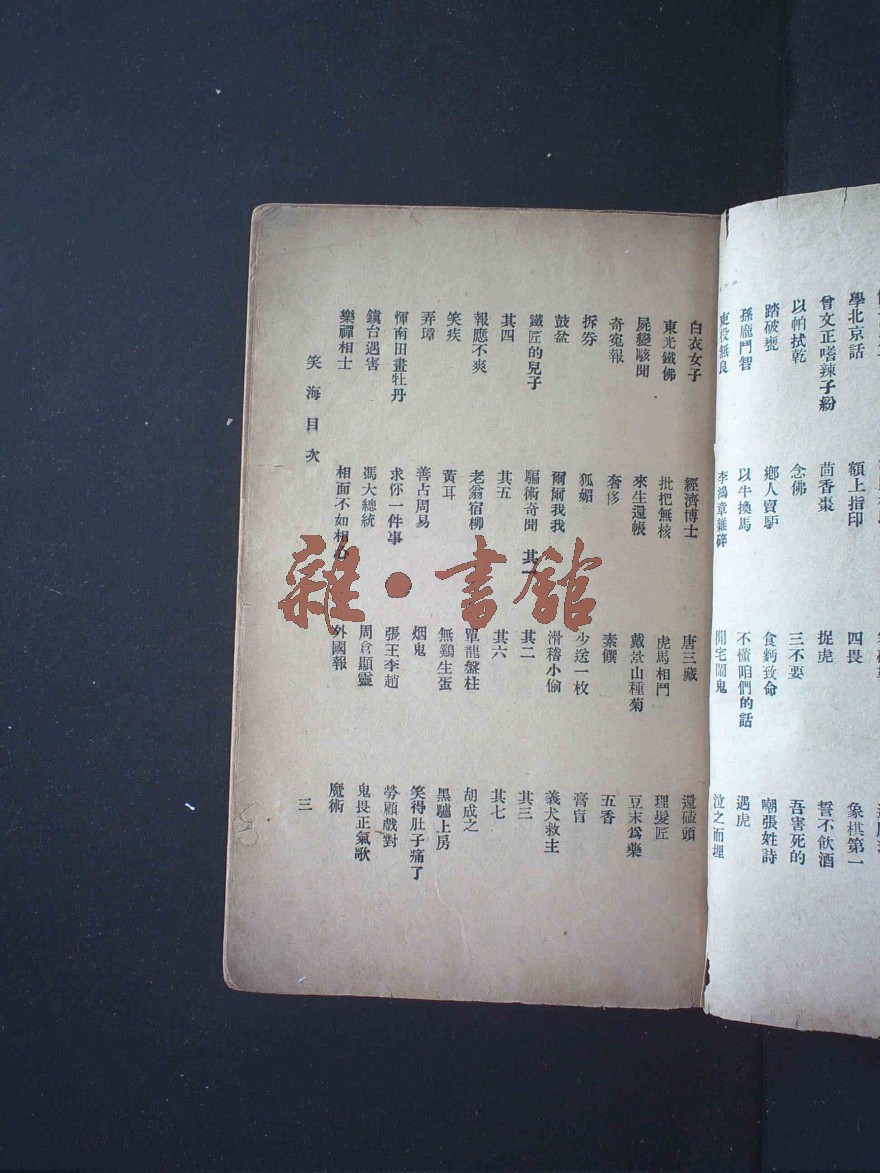 學北京話　額上指印　四畏　象棋第一
曾文正嗜辣子紛　茴香棗　捉虎　誓不飲酒
以帕拭乾　念佛　三不要　吾害死的
踏破甕　鄉人賣驢　食麪致命　嘲張姓詩
孫龐鬥智　以牛換馬　不懂咱們的話　遇虎
吏役無良　李鴻章雜碎　鬧鬼　泣之而埋
白衣女子　經濟博士　唐三藏　還磕頭
東光鐵佛　批把無核　虎馬相鬥　理髮匠
屍變駭聞　來生還帳　戴景山種菊　豆末爲藥
奇寃報　奢侈　素饌　五香
拆券　狐媚　少送一枚　膏盲
鼓盆　爾爾我我　滑稽小偷　義犬救主
鐵匠的兒子　騙術奇聞　其一　其二　其三
其四　其五　其六　其七
報應不爽　老翁宿柳　單龍盤柱　胡成之
笑疾　黃耳　無鷄生蛋　黑驢上房
弄璋　善占周易　烟鬼　笑得肚子痛了
惲南田畫牡丹　求你一件事　張王李趙　勞顧戲對
鎮台遇害　馮大總統　周倉顯靈　鬼畏正氣歌
樂禪相士　相面不如相心　外國報　魔術
笑海目次　三
雜·書館